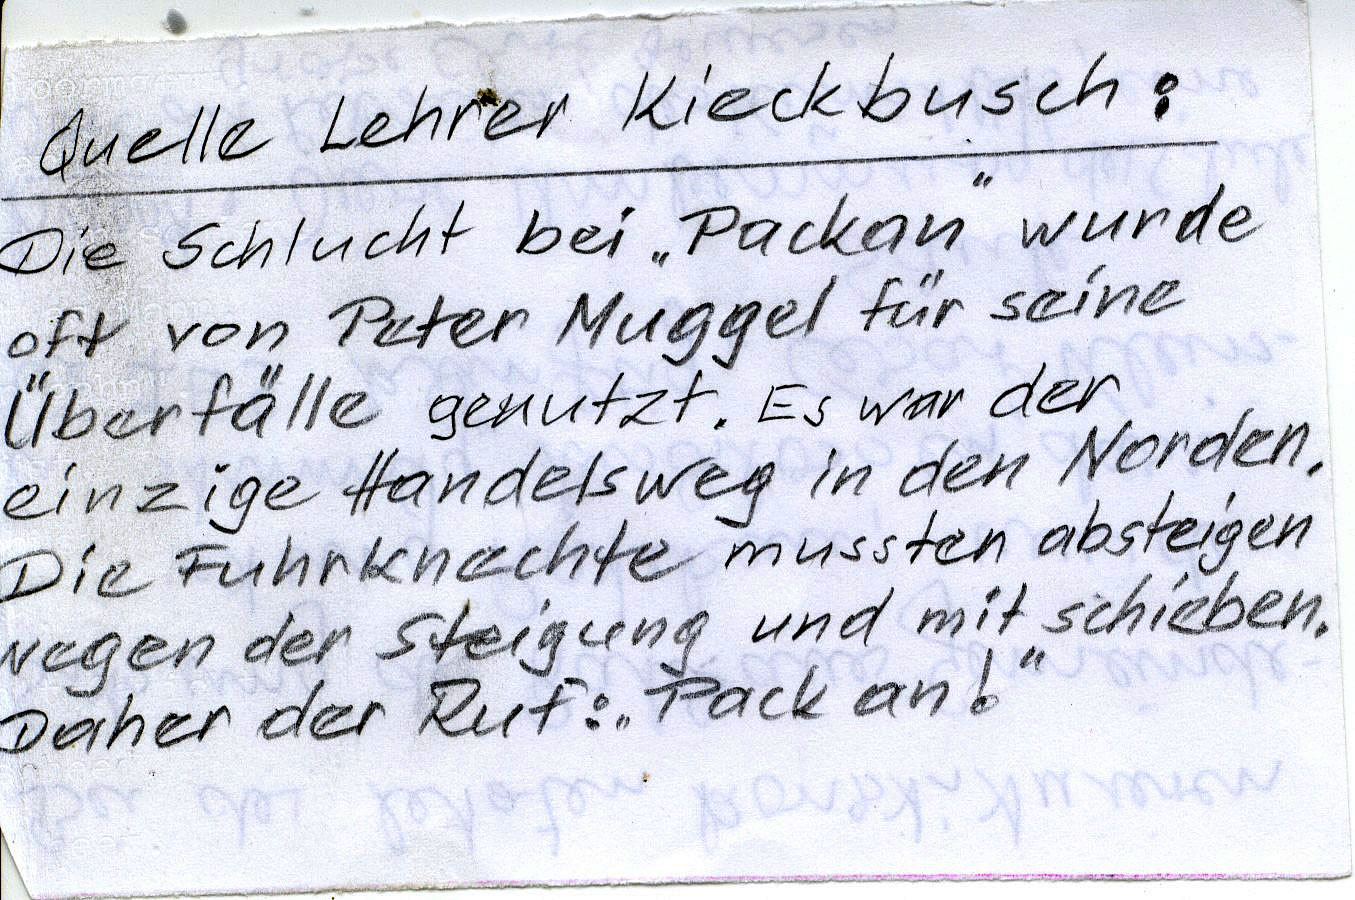 Quelle Lehrer Kieckbusch:
Die Schlucht bei „Packan" wurde
oft von Peter Muggel für seine
Überfälle genutzt. Es war der
einzige Handelsweg in den Norden.
Die Fuhrknechte mussten absteigen
wegen der Steigung und mit schieben.
Daher der Ruf: „Pack an!"